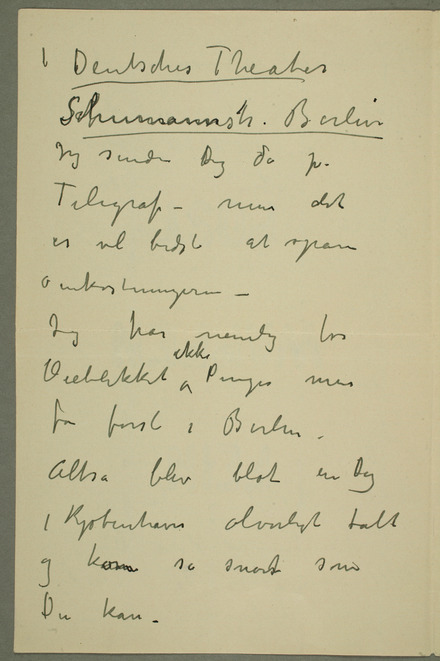 i Deutsches Theater
Schumannstr. Berlin
Jeg sender Dig da pr.
Telegraf – men det
er vel bedst at spare
omkostningerne –
Jeg har nemlig for
Øieblikket ikke Penge men
får først i Berlin.
Altsa blev blot en Dag
i Kjøbenhavn alvorligt talt
og kom så snart som
Du kan.